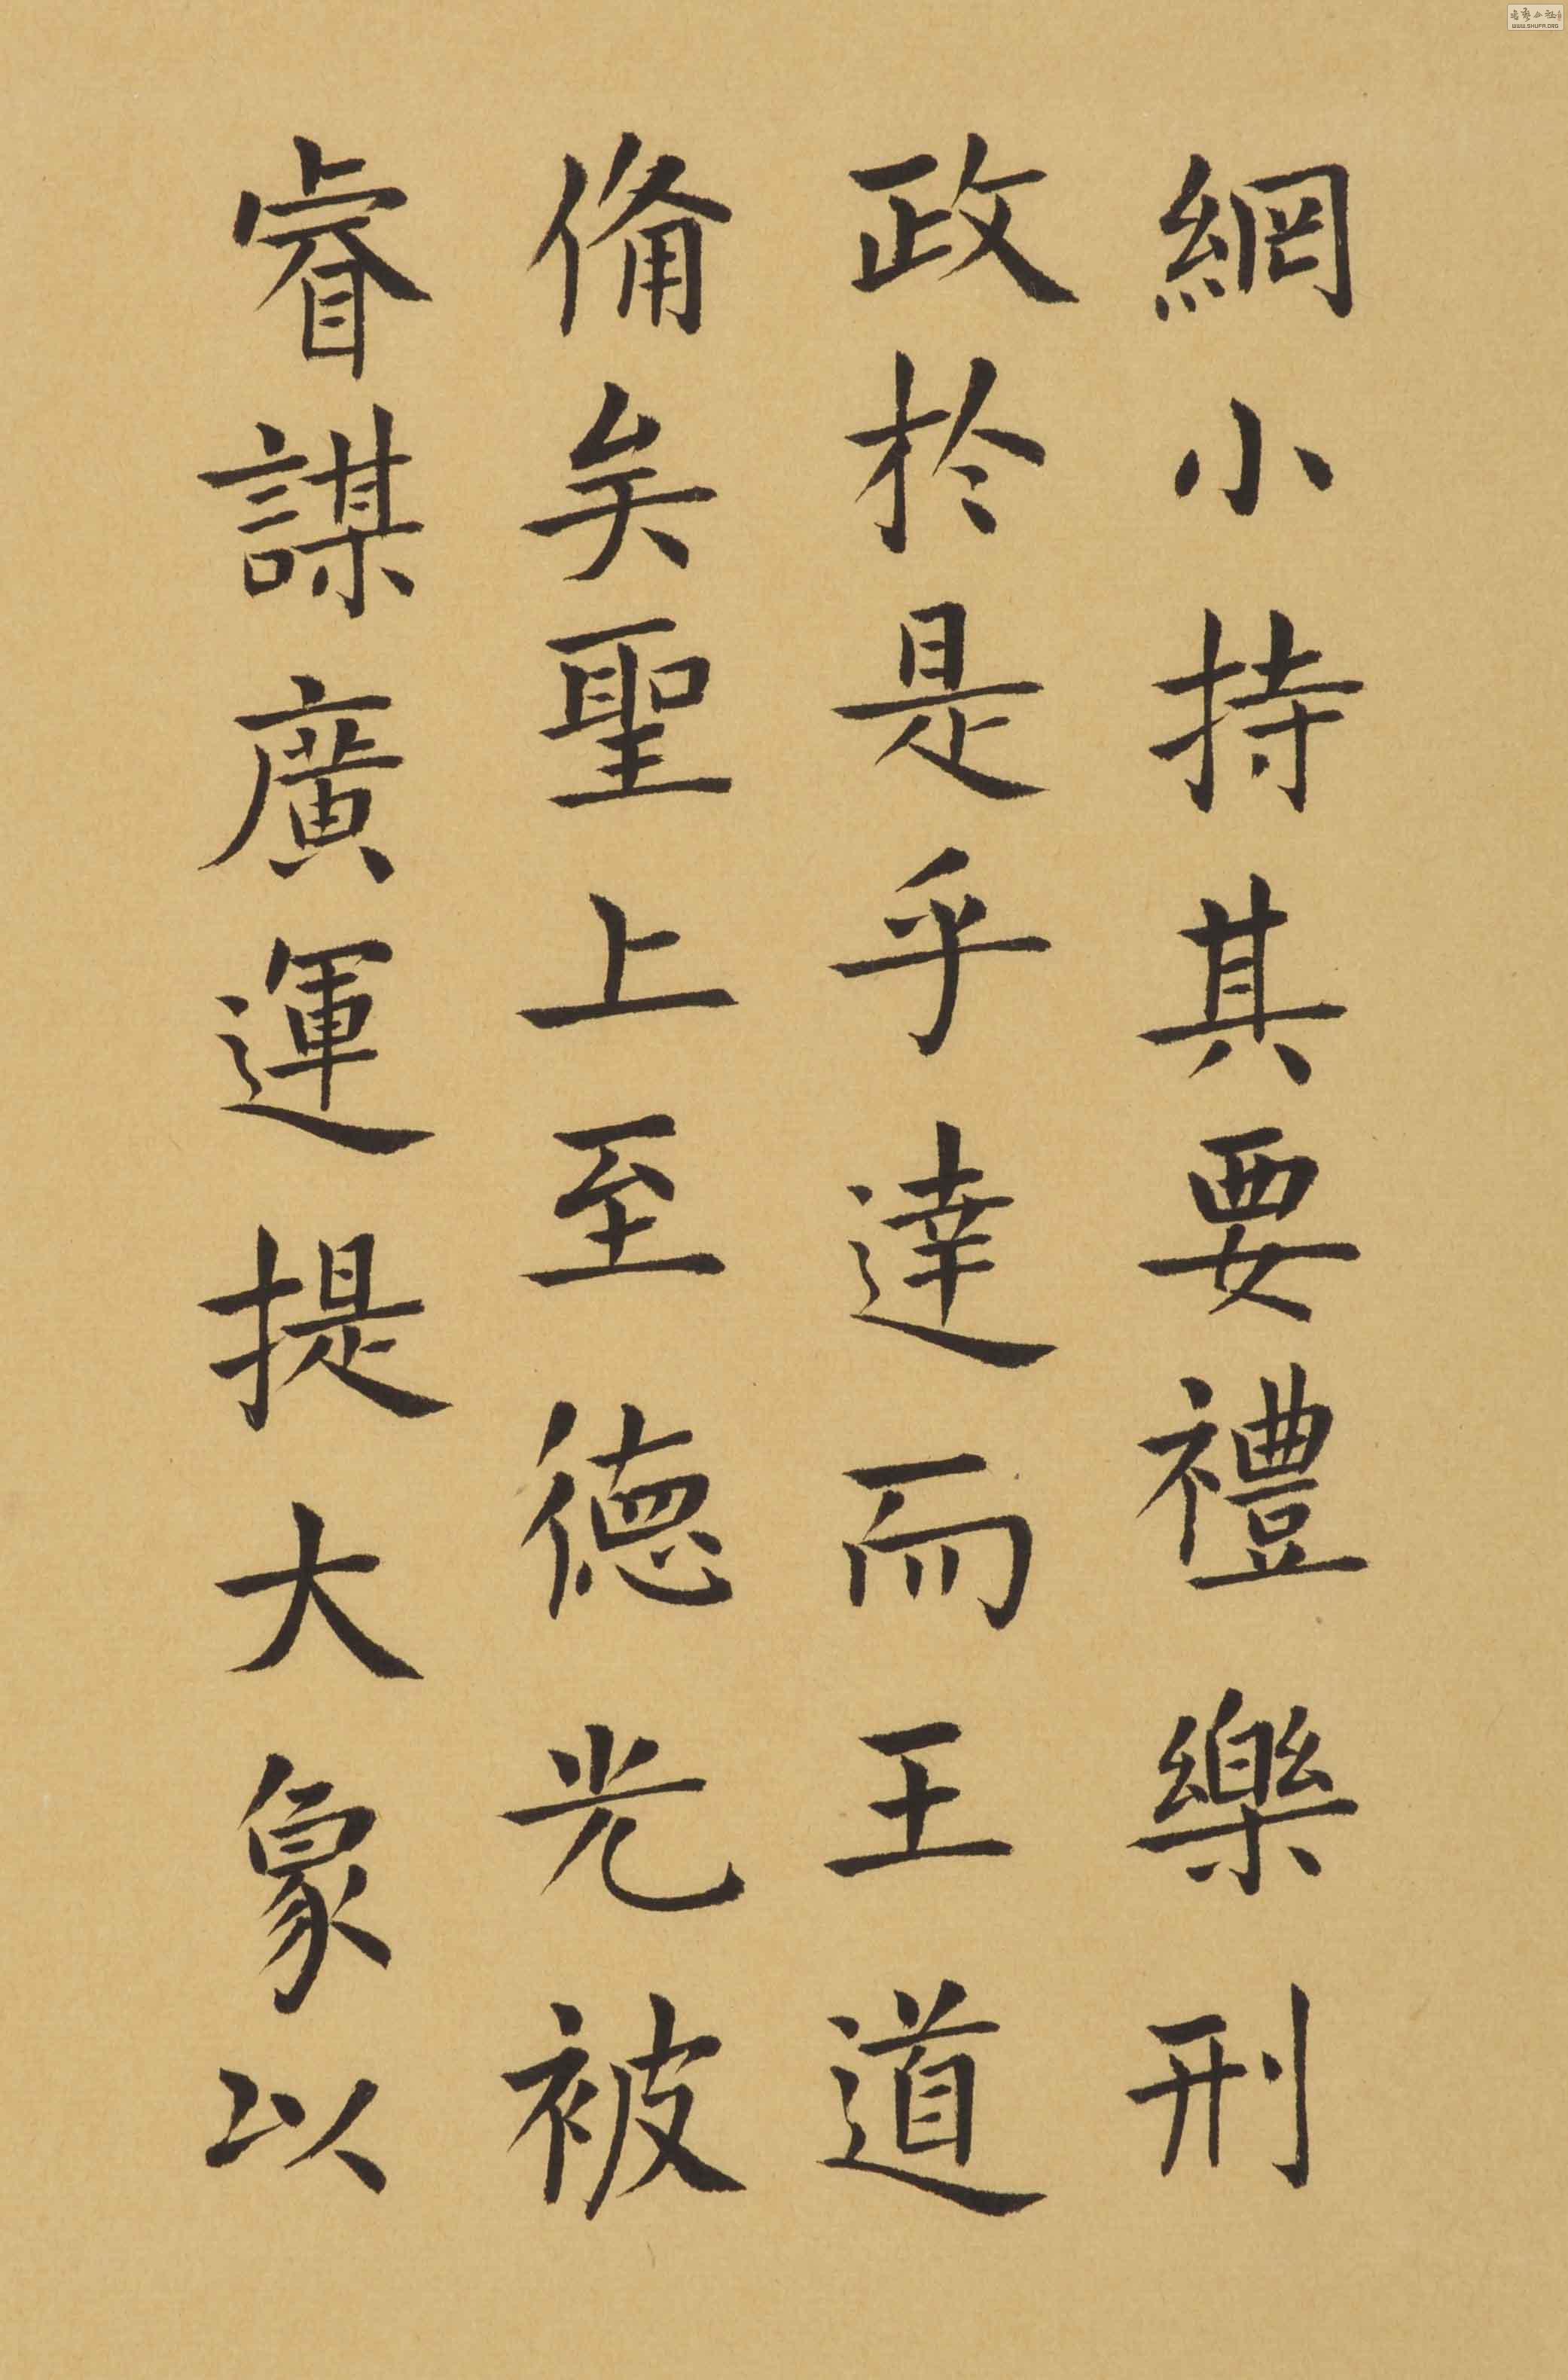 網小持其要禮樂刑
政於是乎達而王道
俻矣聖上至德光被
睿謀廣運提大象以
WWW.SHUFA.ORG